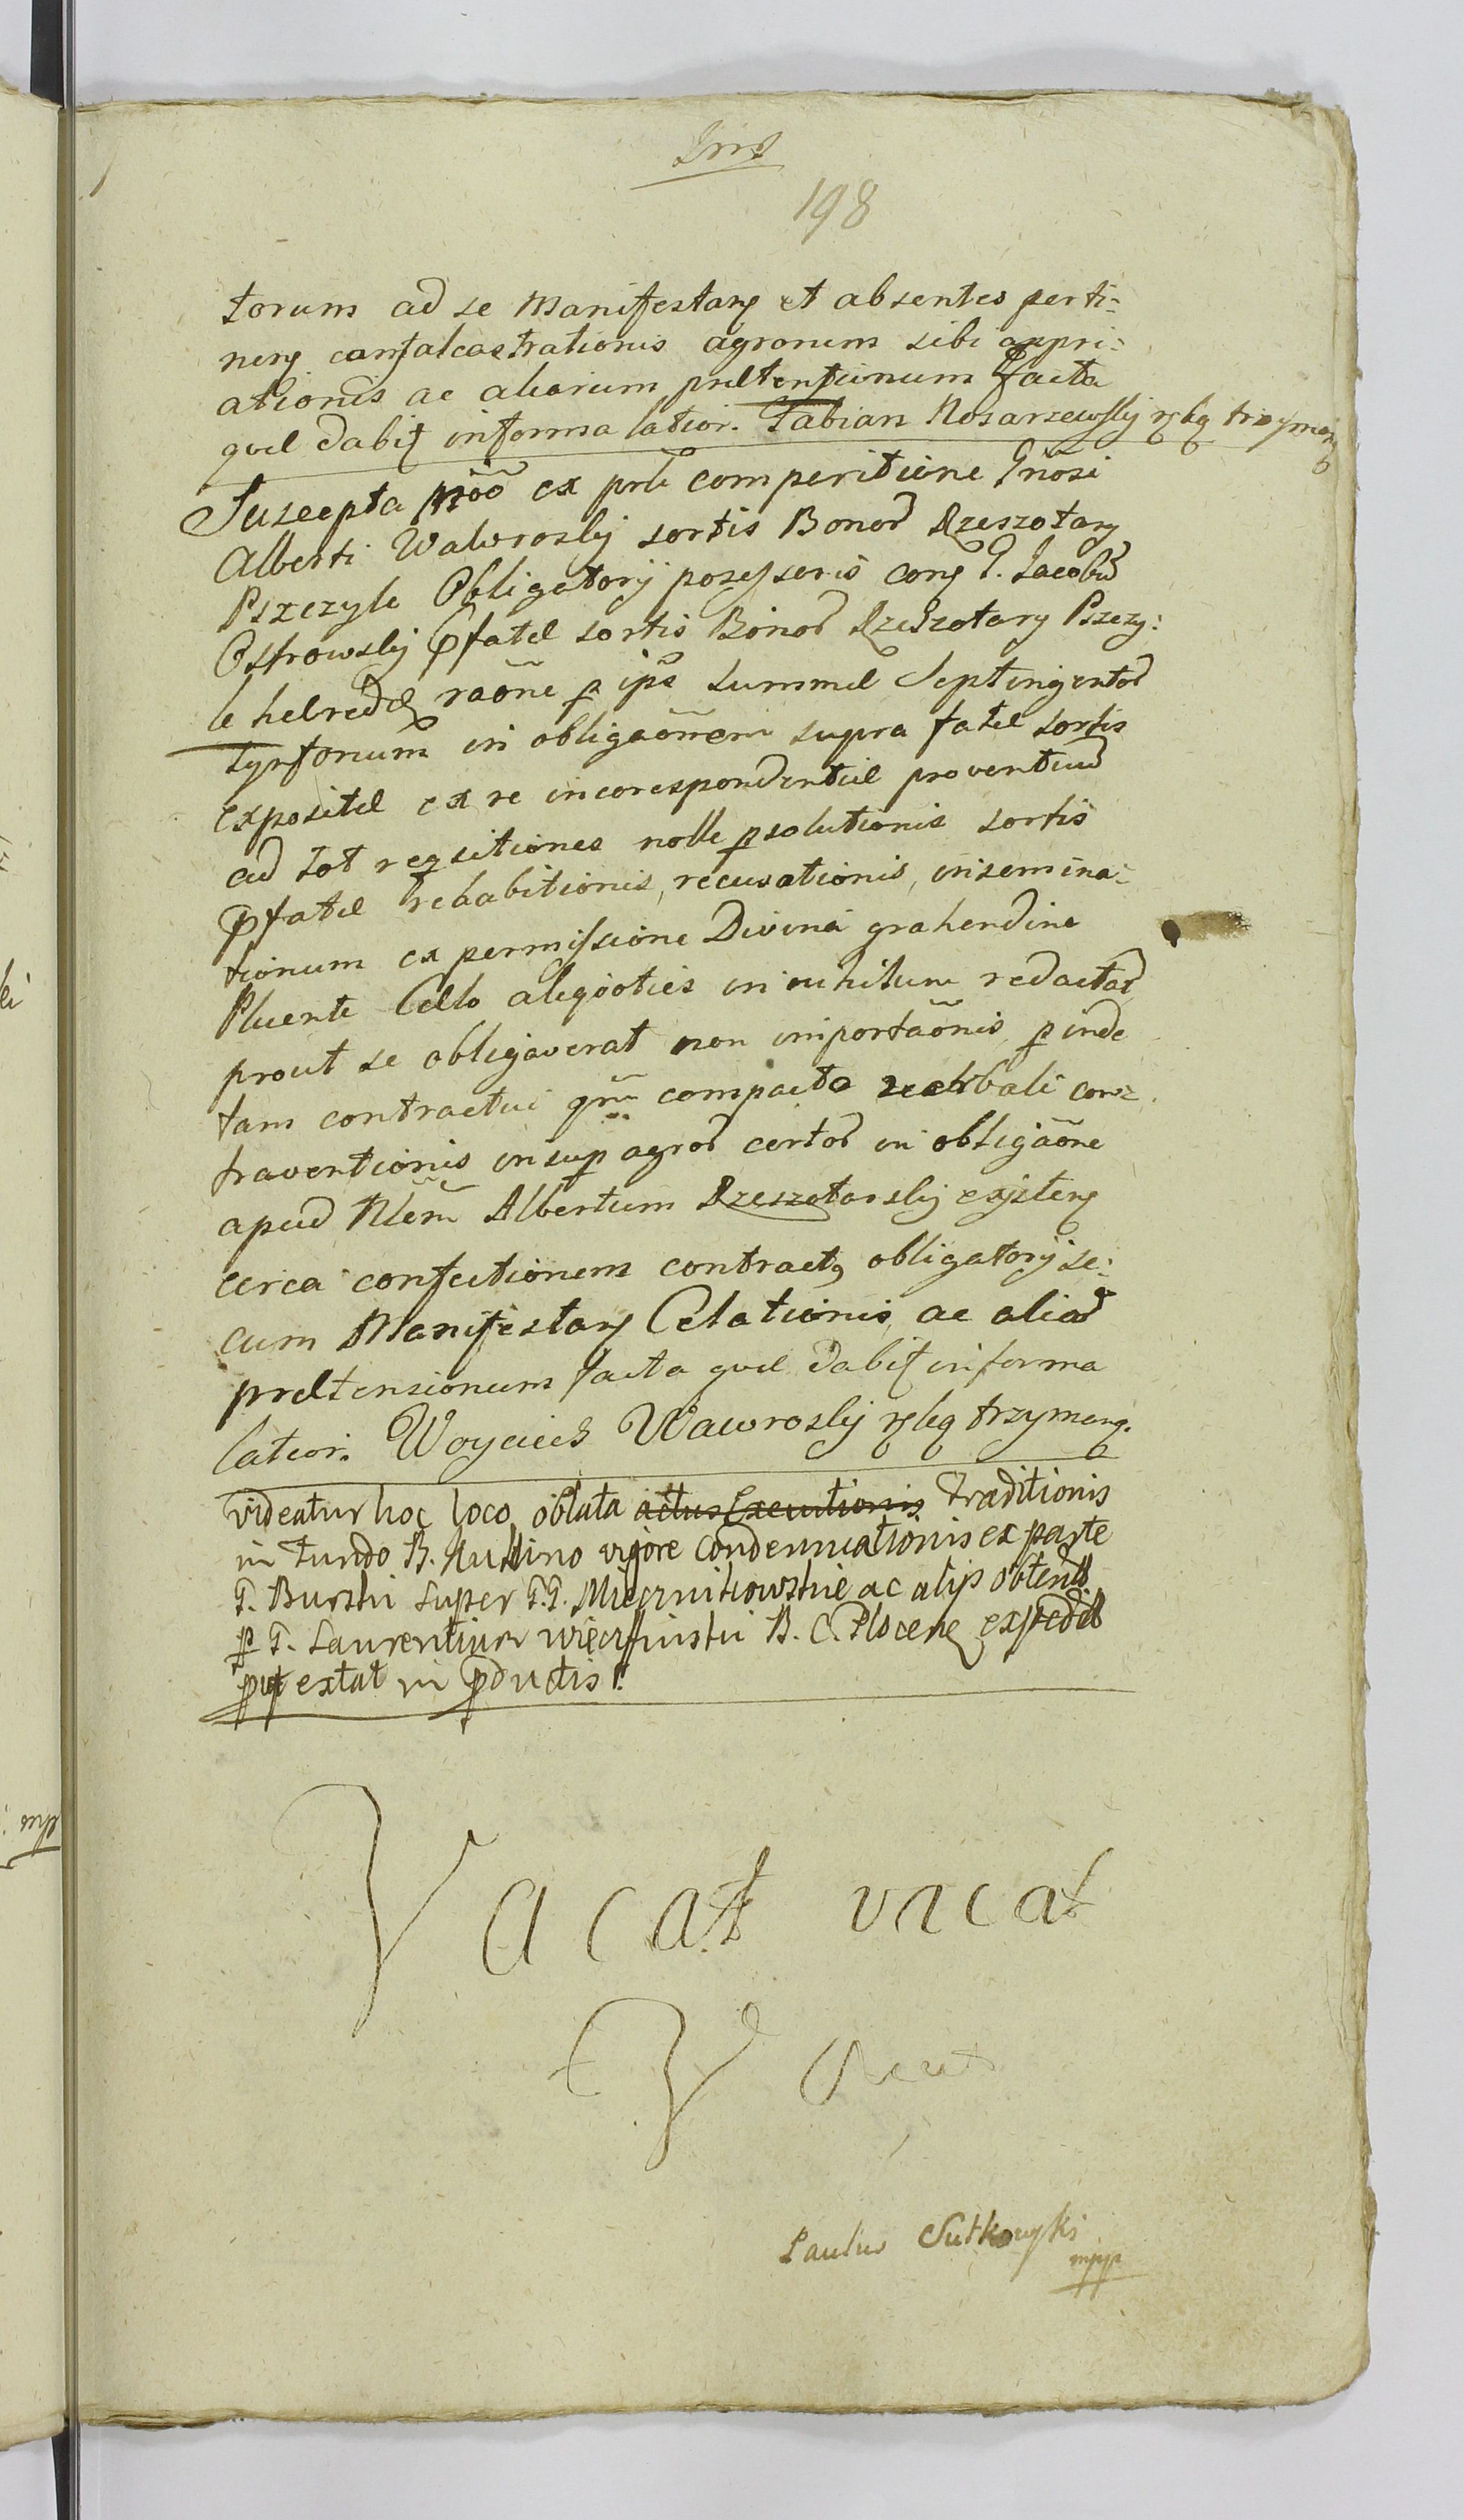 198
torum ad se Manifestang et absentes perti:
neng confalcastrationis agrorum sibi appri:
ationis ac aliorium prætensionum facta
quæ dabit informa latior. Fabian Kosarzewskj ręką trzymaną
Suscepta ex comperitione Gnosi
Alberti Wawroskj sortis Bonor Rzeszotary
Pszczyle Obligatorij possessoris cong G. Jacobū
Ostrowskj Pfatæ sortis Bonor Rzeszotary Pszczy:
le hæredē raõne p ipē summæ Septingentor
tynfonum in obligaõnem supra fatæ sortis
expositæ ex re incorespondentiæ proventuū
ad tot reqsitiones nolle psolutionis sortis
Pfatæ rehabitionis, recusationis, insemina:
tionum ex permissione Divina grahendine
Pluente Cello aliqooties in nihilum redactar
prout se obligaverat non importaõnis, p inde
tam contractui qm̃ compacto verbali con:
traventionis insup agror certor in obligaõne
apud Nlem̃ Albertum Rzeszotarskj existeng
circa confectionem contractg obligatorij se:
cum Manifestang Celationis, ac aliar
prætensionum facta quæ dabit informa
latiori. Woyciech Wawroskj ręką trzymaną.
videatur hoc loco oblata actus Executionis Traditionis
in fundo B. vigore Condemnationis ex parte
G. Burski super G.G. Miecznikowskie ac alijs obtent
p G. Laurentium B. C. Plocens expedit
put extat in Pductis.
Vacat vacat
Vacat
Paulus Sutkowski
mpp